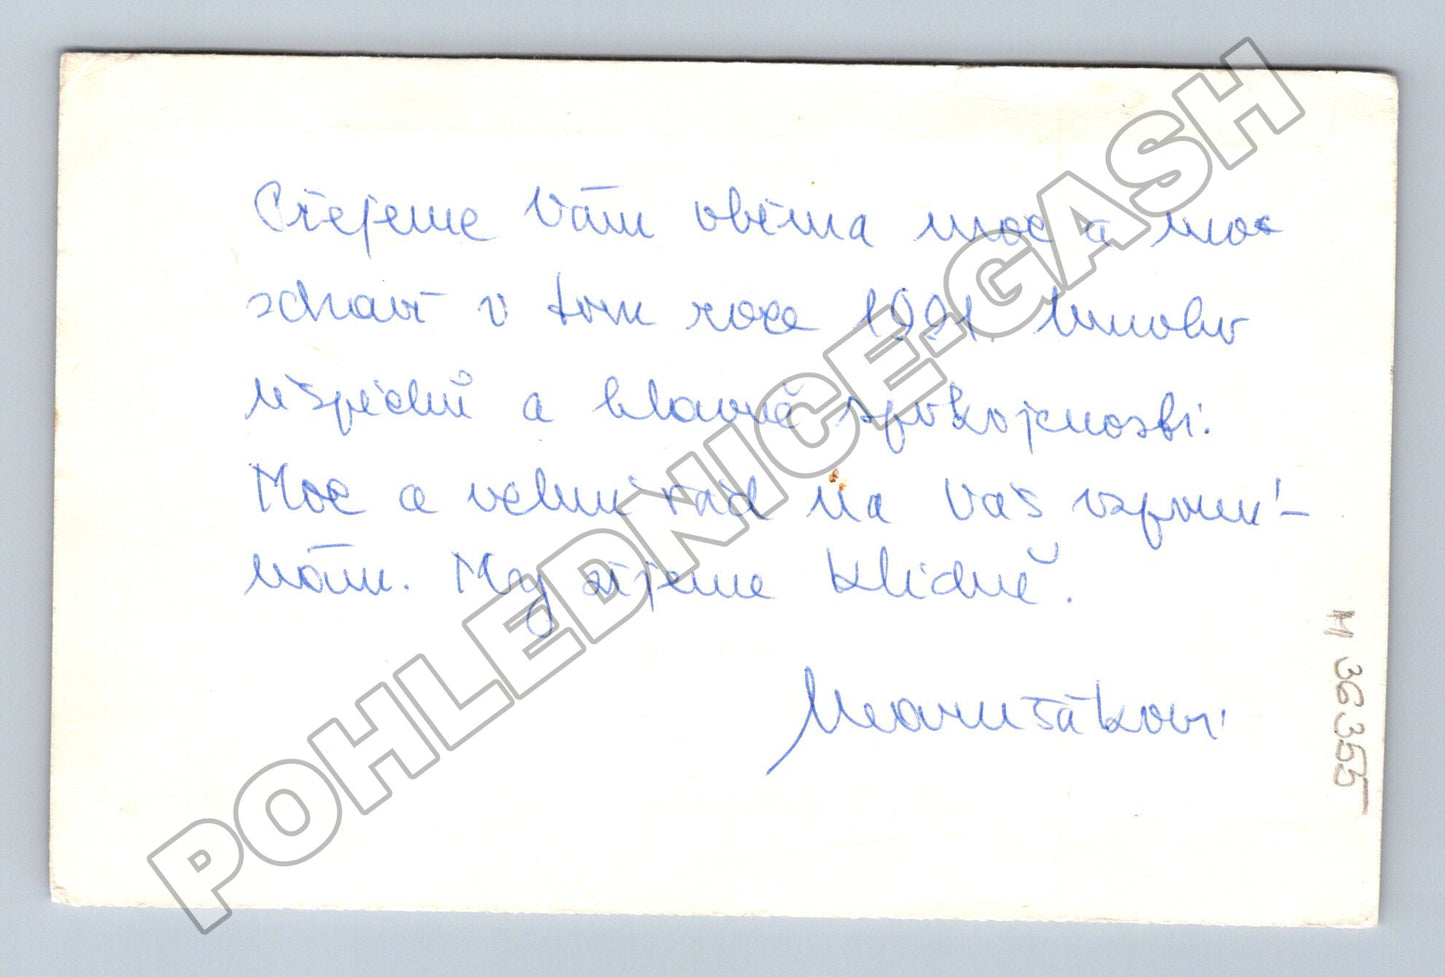 Přejeme Vám oběma moc a moc
zdraví v tom roce 1991. Mnoho
úspěchů a hlavně spokojenosti.
Moc a velmi rád na Vás vzpomí-
nám. My žijeme klidně.
Maruštákovi
M 36355
POHLEDNICE-GASH